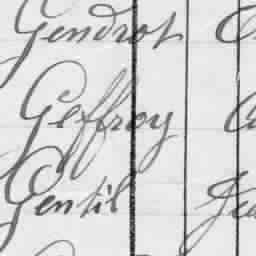 Gendrot
Geffroy
Gentil